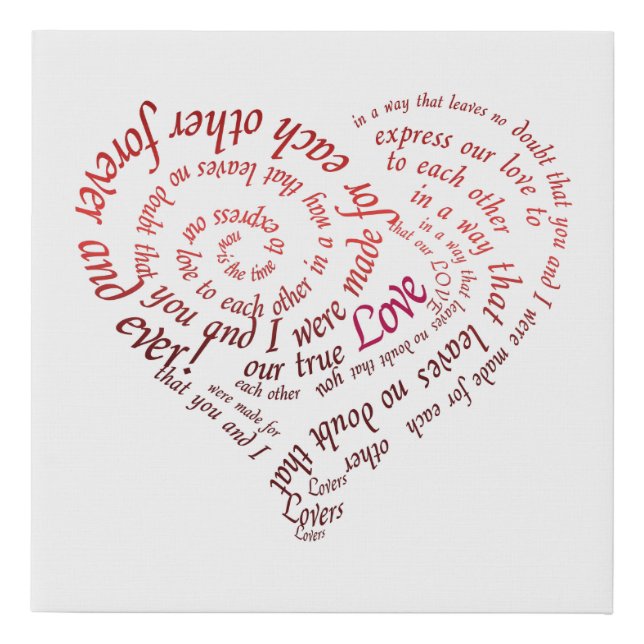 now
is the time
to
express our
love to each other in
a way that leaves no doubt that
you and I were made for
each other forever and
ever!
in a way that leaves no doubt that you and I were made for each
other
express our love to
to each other
in a way that leaves no doubt that
in a way that leaves no doubt that you
that our LOVE
our true Love
each other
were made for
that you and I
Lovers
Lovers
Lovers